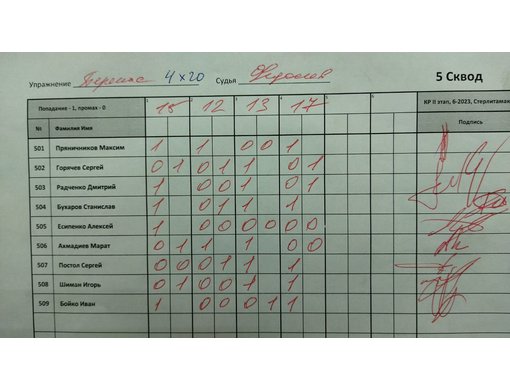 Упражнение Перенос 4x20 Судья 5 Сквод
Попадание - 1, промах - 0 1 15 2 12 3 13 4 17 5 6 КР II этап, 6-2023, Стерлитамак
№ Фамилия Имя Подпись
501 Пряничников Максим 1 1 0 0 1
502 Горячев Сергей 0 1 0 1 1 0 1
503 Радченко Дмитрий 1 0 0 1 0 1
504 Бухаров Станислав 1 0 1 1 1
505 Есипенко Алексей 1 0 0 0 0 0 0
506 Ахмадиев Марат 0 1 1 1 0 0
507 Постол Сергей 0 0 0 1 1 1
508 Шиман Игорь 0 1 0 0 1 1
509 Бойко Иван 1 0 0 0 1 1